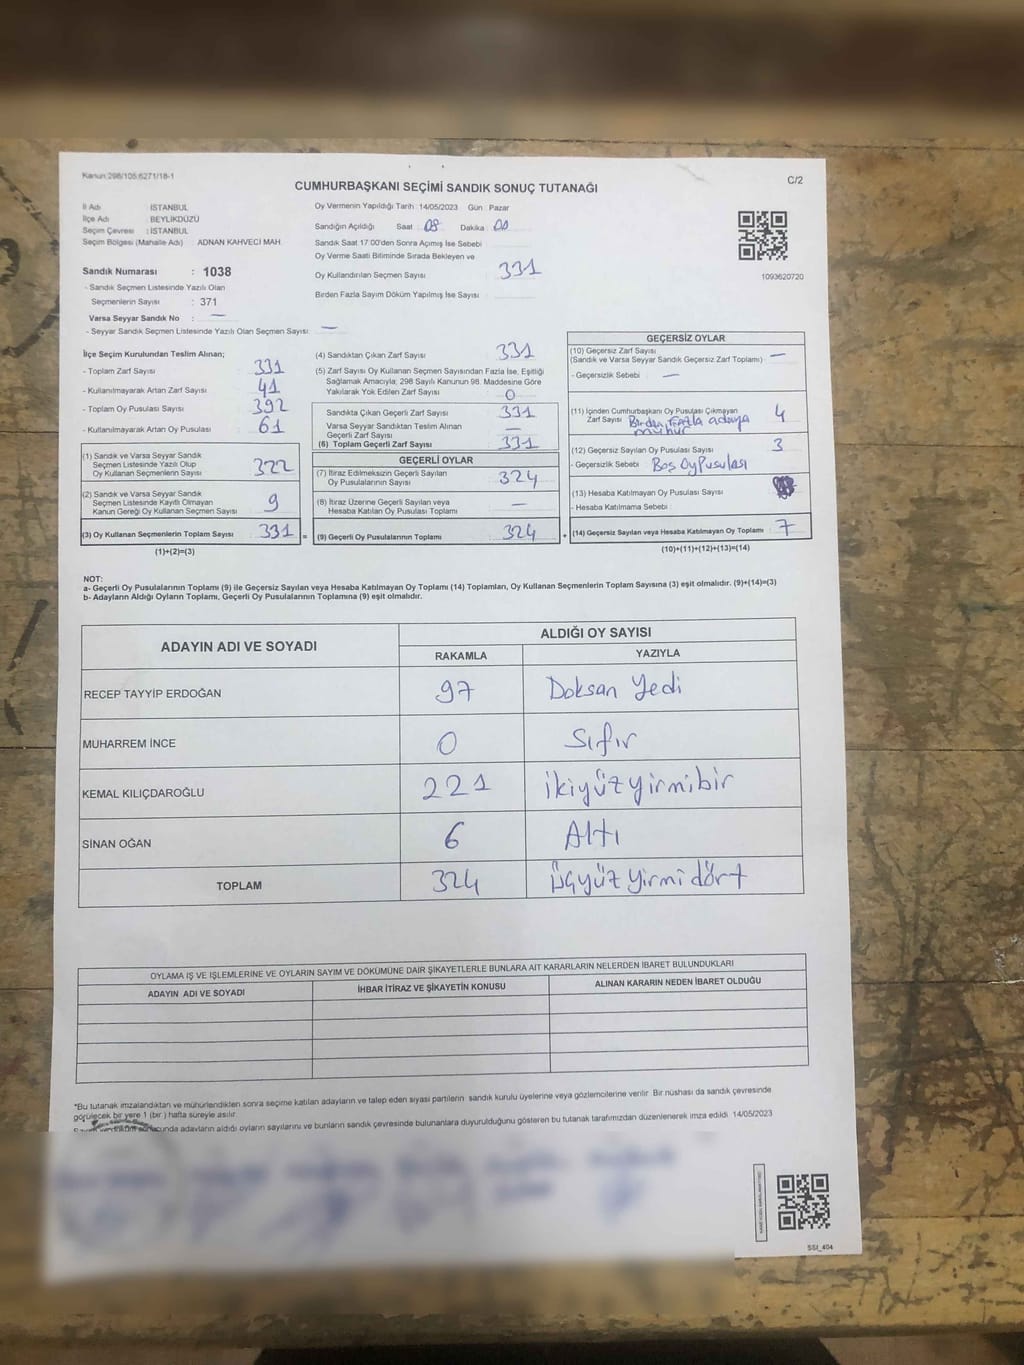 Kanun:298/105;6271/18-1
CUMHURBAŞKANI SEÇİMİ SANDIK SONUÇ TUTANAĞI
C/2
İl Adı : İSTANBUL
İlçe Adı : BEYLİKDÜZÜ
Seçim Çevresi : İSTANBUL
Seçim Bölgesi (Mahalle Adı) ADNAN KAHVECİ MAH.
Sandık Numarası : 1038
- Sandık Seçmen Listesinde Yazılı Olan
Seçmenlerin Sayısı : 371
Varsa Seyyar Sandık No : —
- Seyyar Sandık Seçmen Listesinde Yazılı Olan Seçmen Sayısı: —
Oy Vermenin Yapıldığı Tarih :14/05/2023 Gün : Pazar
Sandığın Açıldığı Saat : 08 Dakika : 00
Sandık Saat 17:00'den Sonra Açımış İse Sebebi
Oy Verme Saati Bitiminde Sırada Bekleyen ve
Oy Kullandırılan Seçmen Sayısı : 331
Birden Fazla Sayım Döküm Yapılmış İse Sayısı :
1093620720
İlçe Seçim Kurulundan Teslim Alınan;
- Toplam Zarf Sayısı : 331
- Kullanılmayarak Artan Zarf Sayısı : 41
- Toplam Oy Pusulası Sayısı : 392
- Kullanılmayarak Artan Oy Pusulası : 61
(1) Sandık ve Varsa Seyyar Sandık
Seçmen Listesinde Yazılı Olup
Oy Kullanan Seçmenlerin Sayısı : 322
(2) Sandık ve Varsa Seyyar Sandık
Seçmen Listesinde Kayıtlı Olmayan
Kanun Gereği Oy Kullanan Seçmen Sayısı : 9
(3) Oy Kullanan Seçmenlerin Toplam Sayısı : 331 =
(1)+(2)=(3)
(4) Sandıktan Çıkan Zarf Sayısı : 331
(5) Zarf Sayısı Oy Kullanan Seçmen Sayısından Fazla İse, Eşitliği
Sağlamak Amacıyla; 298 Sayılı Kanunun 98. Maddesine Göre
Yakılarak Yok Edilen Zarf Sayısı : 0
Sandıkta Çıkan Geçerli Zarf Sayısı : 331
Varsa Seyyar Sandıktan Teslim Alınan
Geçerli Zarf Sayısı : —
(6) Toplam Geçerli Zarf Sayısı : 331
GEÇERLİ OYLAR
(7) İtiraz Edilmeksizin Geçerli Sayılan
Oy Pusulalarının Sayısı : 324
(8) İtiraz Üzerine Geçerli Sayılan veya
Hesaba Katılan Oy Pusulası Toplamı : —
(9) Geçerli Oy Pusulalarının Toplamı : 324 +
GEÇERSİZ OYLAR
(10) Geçersiz Zarf Sayısı
(Sandık ve Varsa Seyyar Sandık Geçersiz Zarf Toplamı) : —
- Geçersizlik Sebebi : —
(11) İçinden Cumhurbaşkanı Oy Pusulası Çıkmayan
Zarf Sayısı : 4
Birden Fazla adaya
mühür
(12) Geçersiz Sayılan Oy Pusulası Sayısı : 3
- Geçersizlik Sebebi : Boş Oy Pusulası
(13) Hesaba Katılmayan Oy Pusulası Sayısı :
- Hesaba Katılmama Sebebi :
(14) Geçersiz Sayılan veya Hesaba Katılmayan Oy Toplamı : 7
(10)+(11)+(12)+(13)=(14)
NOT:
a- Geçerli Oy Pusulalarının Toplamı (9) ile Geçersiz Sayılan veya Hesaba Katılmayan Oy Toplamı (14) Toplamları, Oy Kullanan Seçmenlerin Toplam Sayısına (3) eşit olmalıdır. (9)+(14)=(3)
b- Adayların Aldığı Oyların Toplamı, Geçerli Oy Pusulalarının Toplamına (9) eşit olmalıdır.
ADAYIN ADI VE SOYADI
ALDIĞI OY SAYISI
RAKAMLA YAZIYLA
RECEP TAYYİP ERDOĞAN 97 Doksan Yedi
MUHARREM İNCE 0 Sıfır
KEMAL KILIÇDAROĞLU 221 ikiyüzyirmibir
SİNAN OĞAN 6 Altı
TOPLAM 324 üçyüz yirmi dört
OYLAMA İŞ VE İŞLEMLERİNE VE OYLARIN SAYIM VE DÖKÜMÜNE DAİR ŞİKAYETLERLE BUNLARA AİT KARARLARIN NELERDEN İBARET BULUNDUKLARI
ADAYIN ADI VE SOYADI İHBAR İTİRAZ VE ŞİKAYETİN KONUSU ALINAN KARARIN NEDEN İBARET OLDUĞU
*Bu tutanak imzalandıktan ve mühürlendikten sonra seçime katılan adayların ve talep eden siyasi partilerin sandık kurulu üyelerine veya gözlemcilerine verilir. Bir nüshası da sandık çevresinde
görülecek bir yere 1 (bir) hafta süreyle asılır.
adayların aldığı oyların sayılarını ve bunların sandık çevresinde bulunanlara duyurulduğunu gösteren bu tutanak tarafımızdan düzenlenerek imza edildi. 14/05/2023
SSt_404